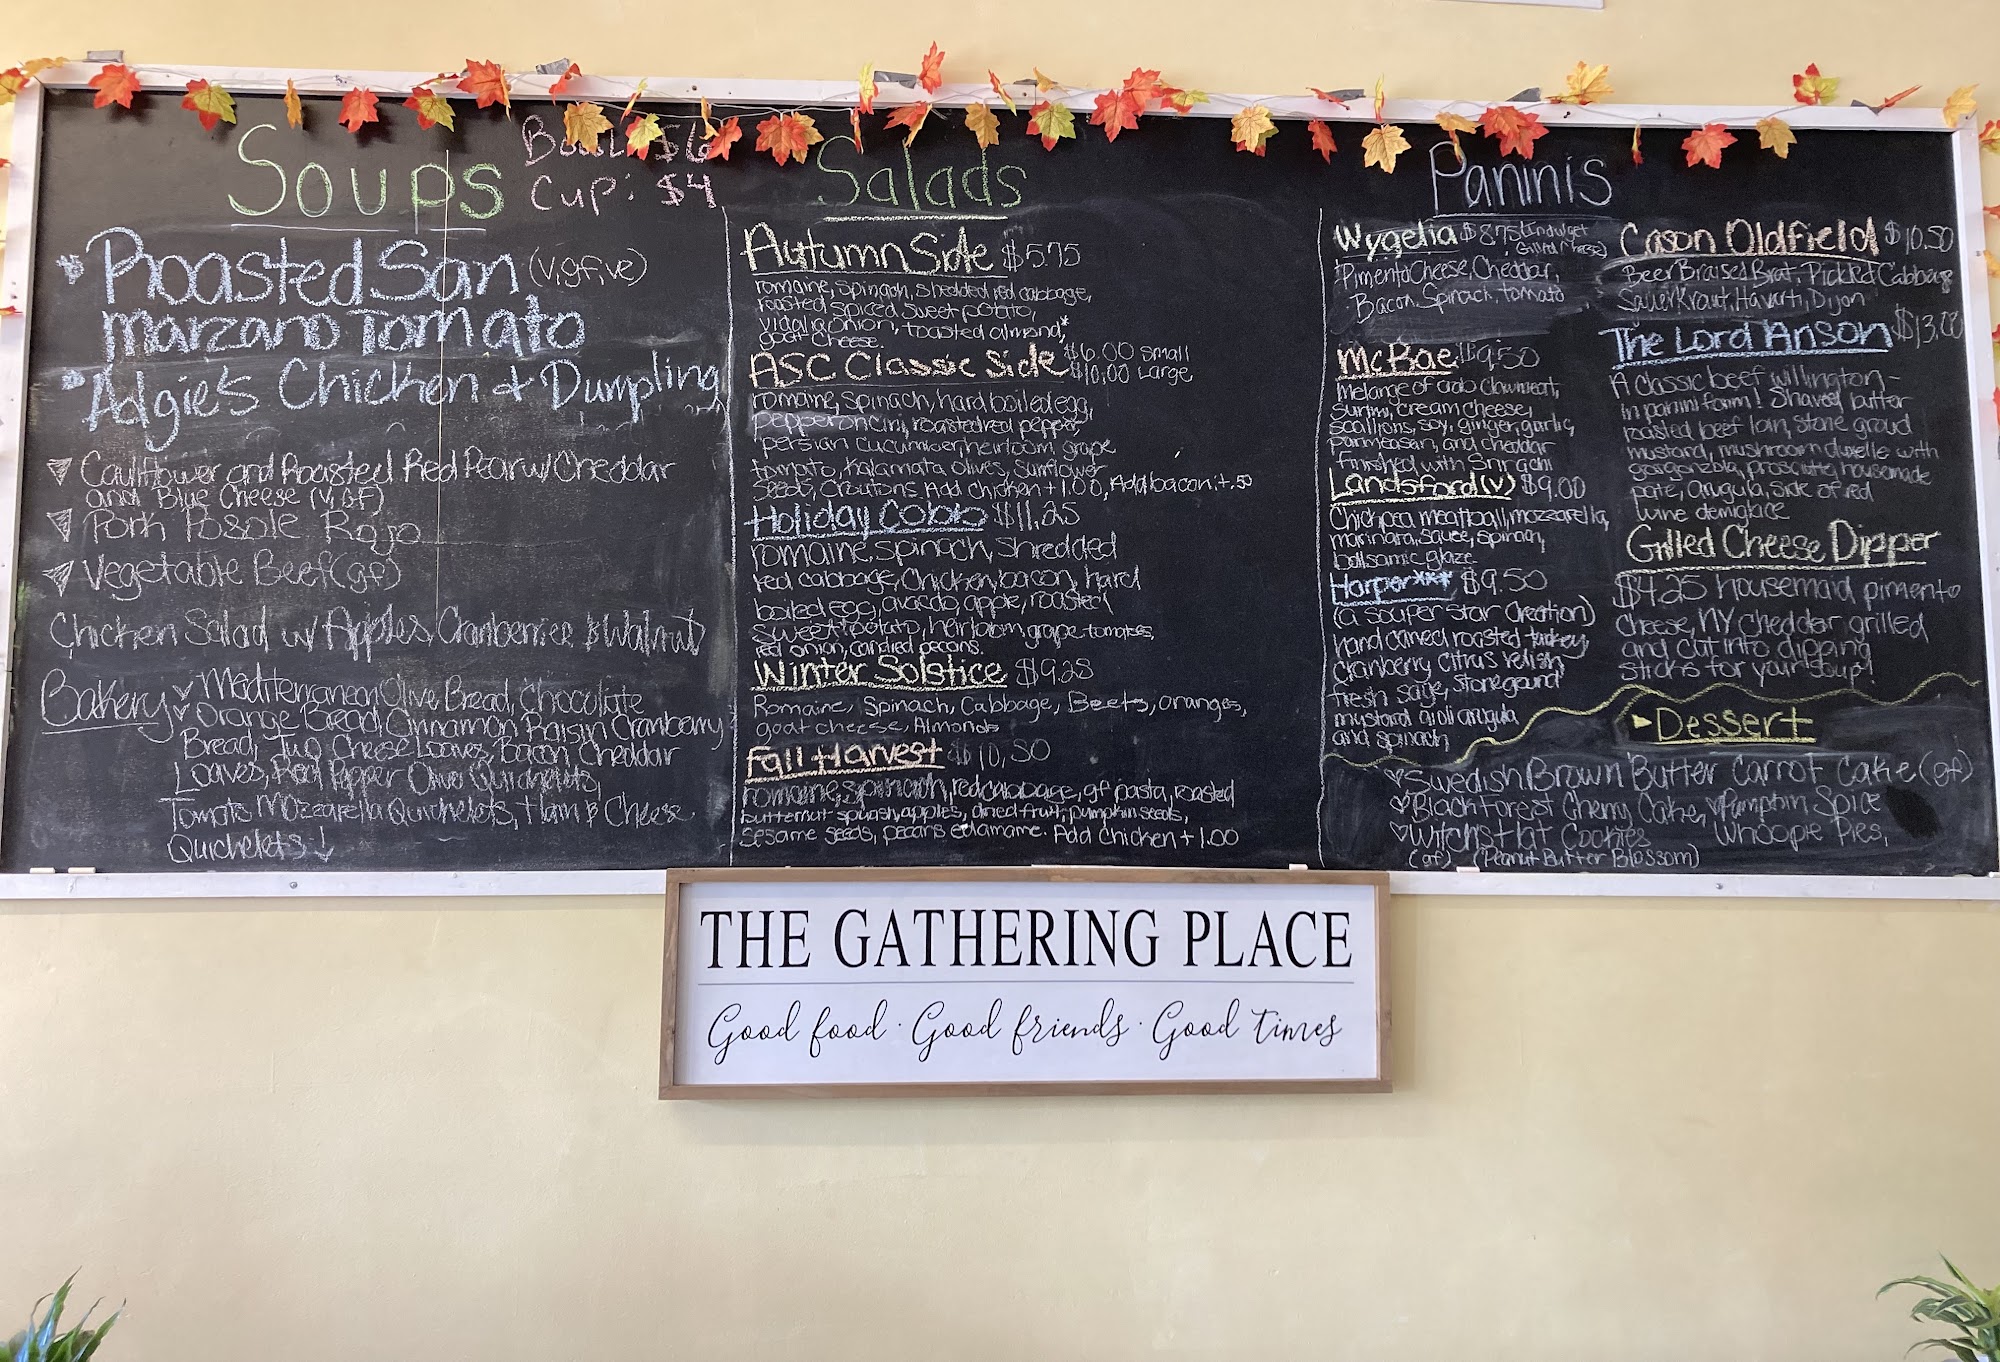 Soups
Bowl: $6
Cup: $4
* Roasted San (v,gf,ve)
Marzano Tomato
* Adgie's Chicken & Dumpling
Cauliflower and Roasted Red Pear w/ Cheddar
and Blue Cheese (V, GF)
Pork Posole Rojo
Vegetable Beef (gf)
Chicken Salad w/ Apples, Cranberries & Walnut
Bakery Mediterranean Olive Bread, Chocolate
Orange Bread, Cinnamon Raisin Cranberry
Bread, Two Cheese Loaves, Bacon Cheddar
Loaves, Red Pepper Olive Quichelets,
Tomato Mozzarella Quichelets, Ham & Cheese
Quichelets ↓
Salads
Autumn Side $5.75
romaine, spinach, shedded red cabbage,
roasted spiced sweet potato,
vidalia onion, toasted almond,*
goat cheese.
ASC Classic Side $6.00 small
$10.00 Large
romaine, spinach, hard boiled egg,
pepperoncini, roasted red pepper
persian cucumber, heirloom grape
tomato, Kalamata olives, sunflower
seeds, croutons Add chicken + 1.00, Add bacon: +.50
Holiday Cobb $11.25
romaine, spinach, shredded
red cabbage, chicken, bacon, hard
boiled egg, avacdo, apple, roasted
sweet potato, heirloom grape tomatoes,
red onion, candied pecans.
Winter Solstice $9.25
Romaine, Spinach, Cabbage, Beets, oranges,
goat cheese, Almonds
Fall Harvest $10.50
romaine, spinach, red cabbage, gf pasta, roasted
butternut squash, apples, dried fruit, pumpkin seeds,
sesame seeds, pecans edamame. Add Chicken + 1.00
Paninis
Wygelia $8.75 (Indulget
Grilled Cheese)
Pimento Cheese, Cheddar,
Bacon, Spinach, tomato
McRae $9.50
melange of crab claw meat,
surimi, cream cheese,
scallions, soy, ginger, garlic,
parmeasan, and cheddar
finished with Sriracha
Landsford (v) $9.00
Chickpea meatball, mozzarella,
marinara, sauce, spinach,
ballsamic glaze
Harper*** $9.50
(a souper star creation)
hand carved roasted turkey
cranberry citrus relish
fresh sage, stoneground
mustard aioli arugula
and spinach
Cason Oldfield $10.50
Beer Braised Brat, Pickled Cabbage
Sauerkraut, Havarti, Dijon
The Lord Anson $13.00
A classic beef willington -
in panini form! Shaved butter
roasted beef loin, stone groud
mustard, mushroom duxelle with
gorgonzola, prosciutto, housemade
pate, arugula, side of red
wine demiglace
Grilled Cheese Dipper
$4.25 housemaid pimento
cheese, NY cheddar grilled
and cut into dipping
sticks for your soup!
Dessert
Swedish Brown Butter Carrot Cake (gf)
Black Forest Cherry Cake, Pumpkin Spice
Witchs Hat Cookies Whoopie Pies,
(gf) (Peanut Butter Blossom)
THE GATHERING PLACE
Good food · Good friends · Good times